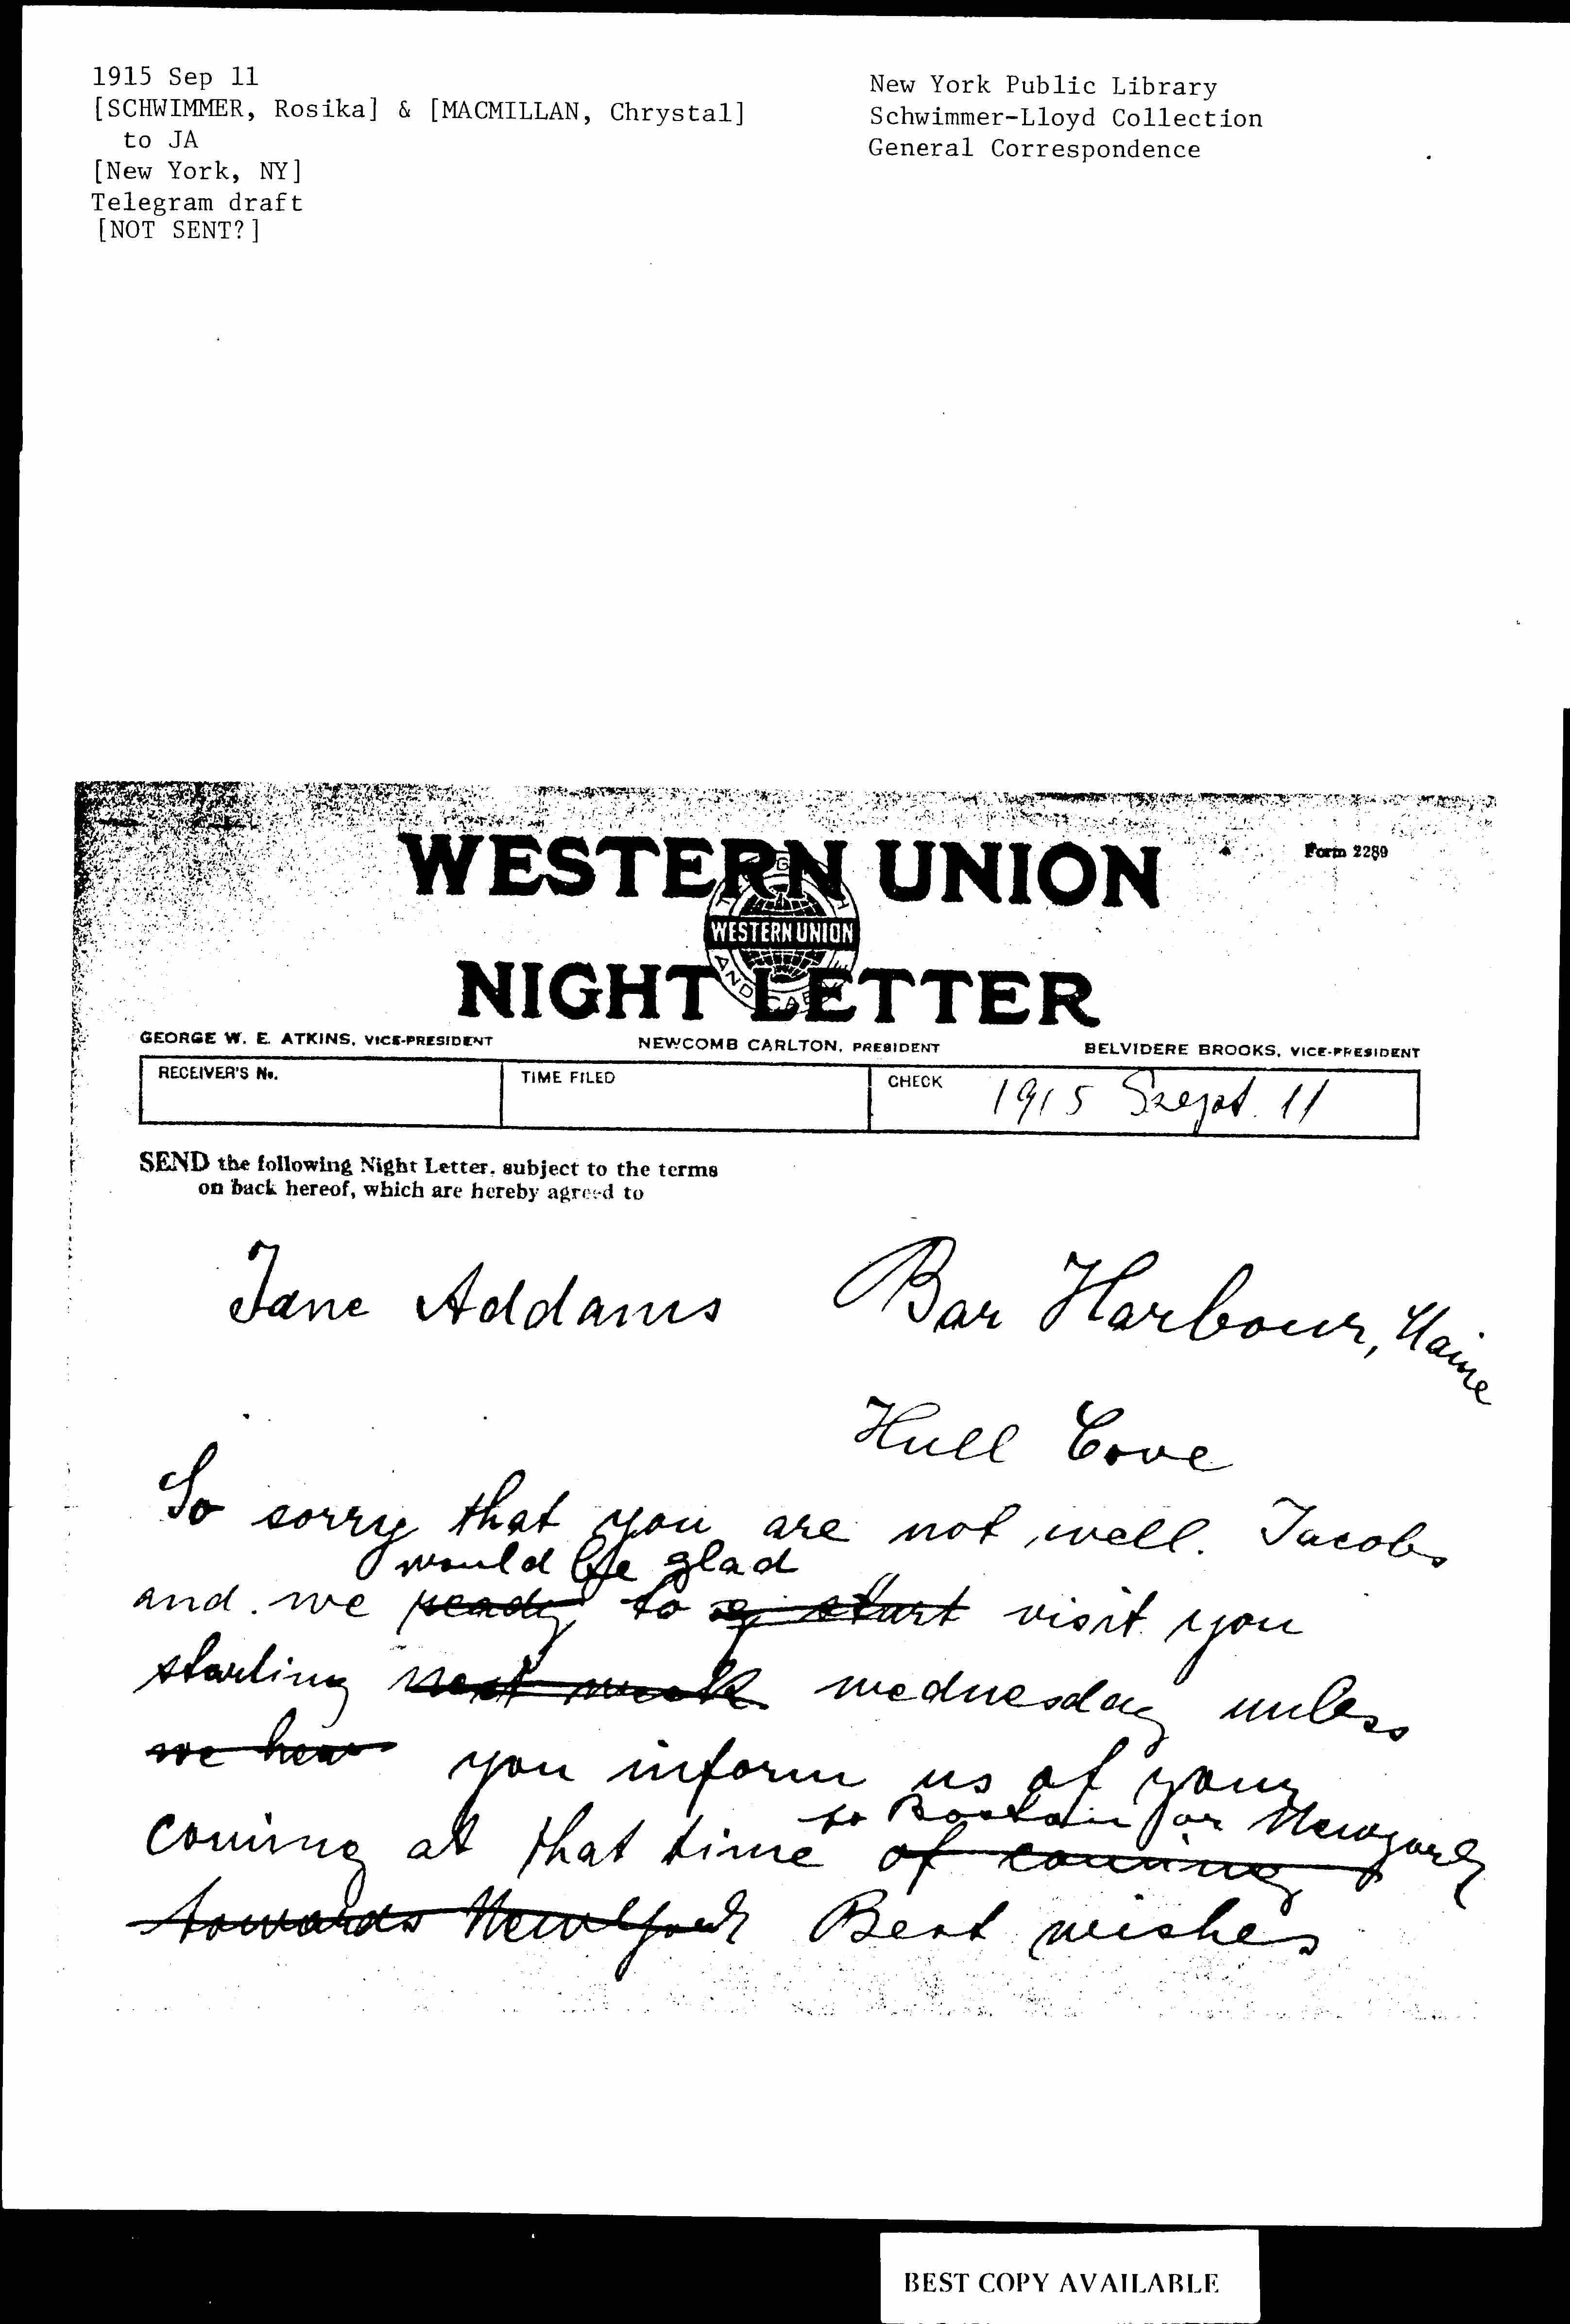 1915 Sep 11
[SCHWIMMER, Rosika] & [MACMILLAN, Chrystal]
to JA
[New York, NY]
Telegram draft
[NOT SENT?]
New York Public Library
Schwimmer-Lloyd Collection
General Correspondence
WESTERN UNION
Form 2289
WESTERN UNION
AND CABLE
NIGHT LETTER
GEORGE W. E. ATKINS, VICE-PRESIDENT
NEWCOMB CARLTON, PRESIDENT
BELVIDERE BROOKS, VICE-PRESIDENT
RECEIVER'S No.
TIME FILED
CHECK
1915 Szept. 11
SEND the following Night Letter, subject to the terms
on back hereof, which are hereby agreed to
Jane Addams
Bar Harbour, Maine
Hull Cove
So sorry that you are not well. Jacobs
would be glad
and we ready to start visit you
starting next week wednesday unless
we hear you inform us of your
to Boston or Newyork
coming at that time of coming
towards New York Best wishes
BEST COPY AVAILABLE